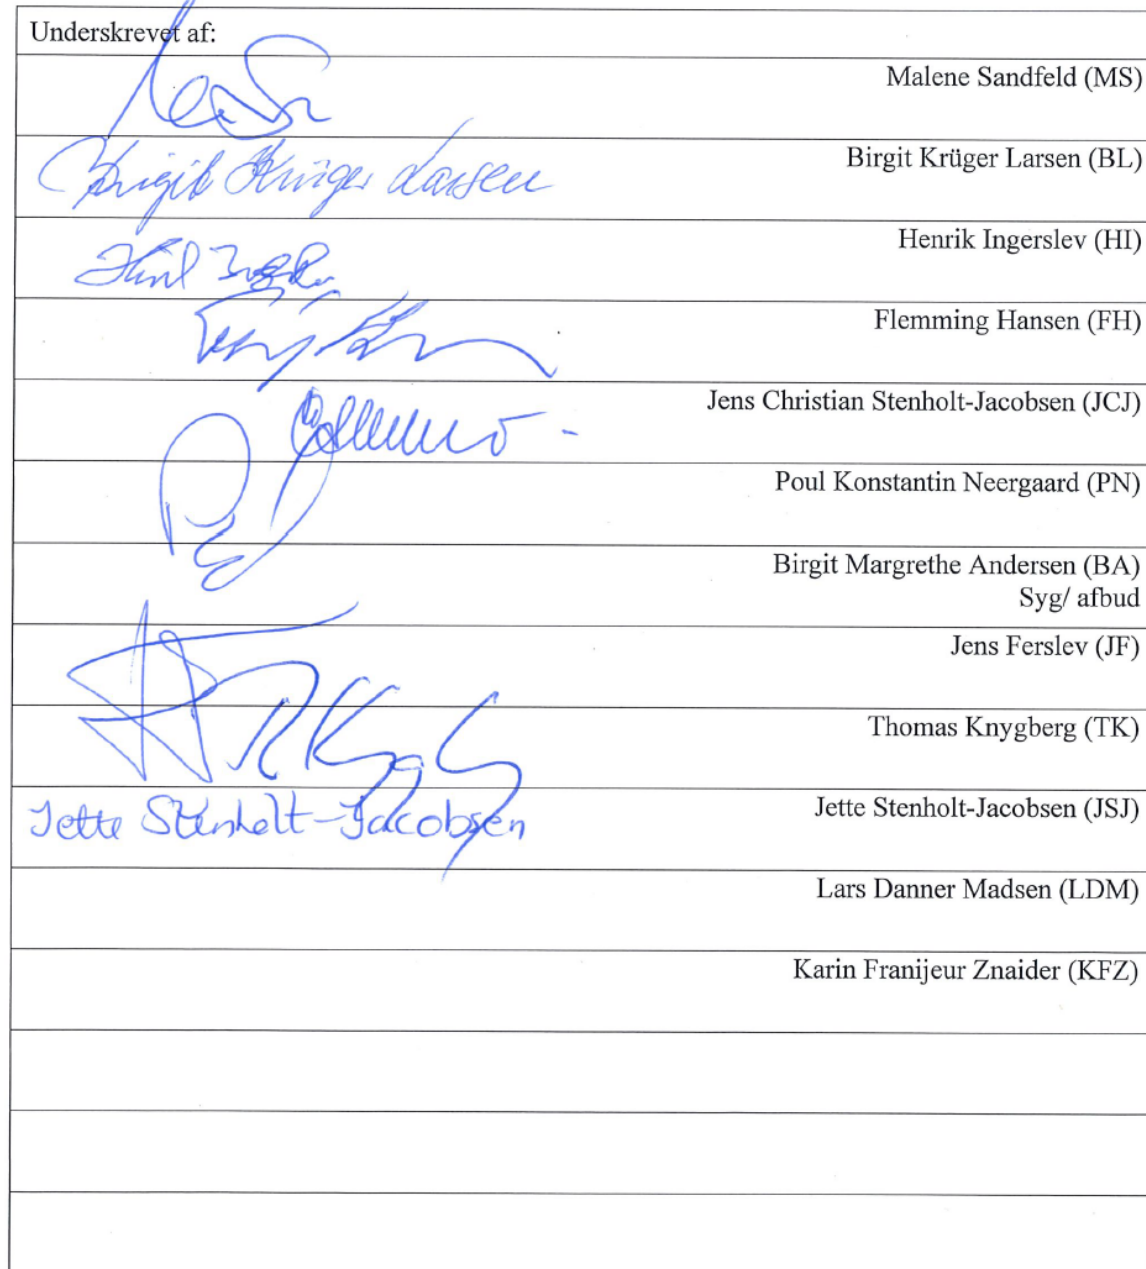 Underskrevet af:
Malene Sandfeld (MS)
Birgit Krüger Larsen Birgit Krüger Larsen (BL)
Henrik Ingerslev (HI)
Flemming Hansen (FH)
Jens Christian Stenholt-Jacobsen (JCJ)
Poul Konstantin Neergaard (PN)
Birgit Margrethe Andersen (BA)
Syg/ afbud
Jens Ferslev (JF)
Thomas Knygberg (TK)
Jette Stenholt-Jacobsen Jette Stenholt-Jacobsen (JSJ)
Lars Danner Madsen (LDM)
Karin Franijeur Znaider (KFZ)